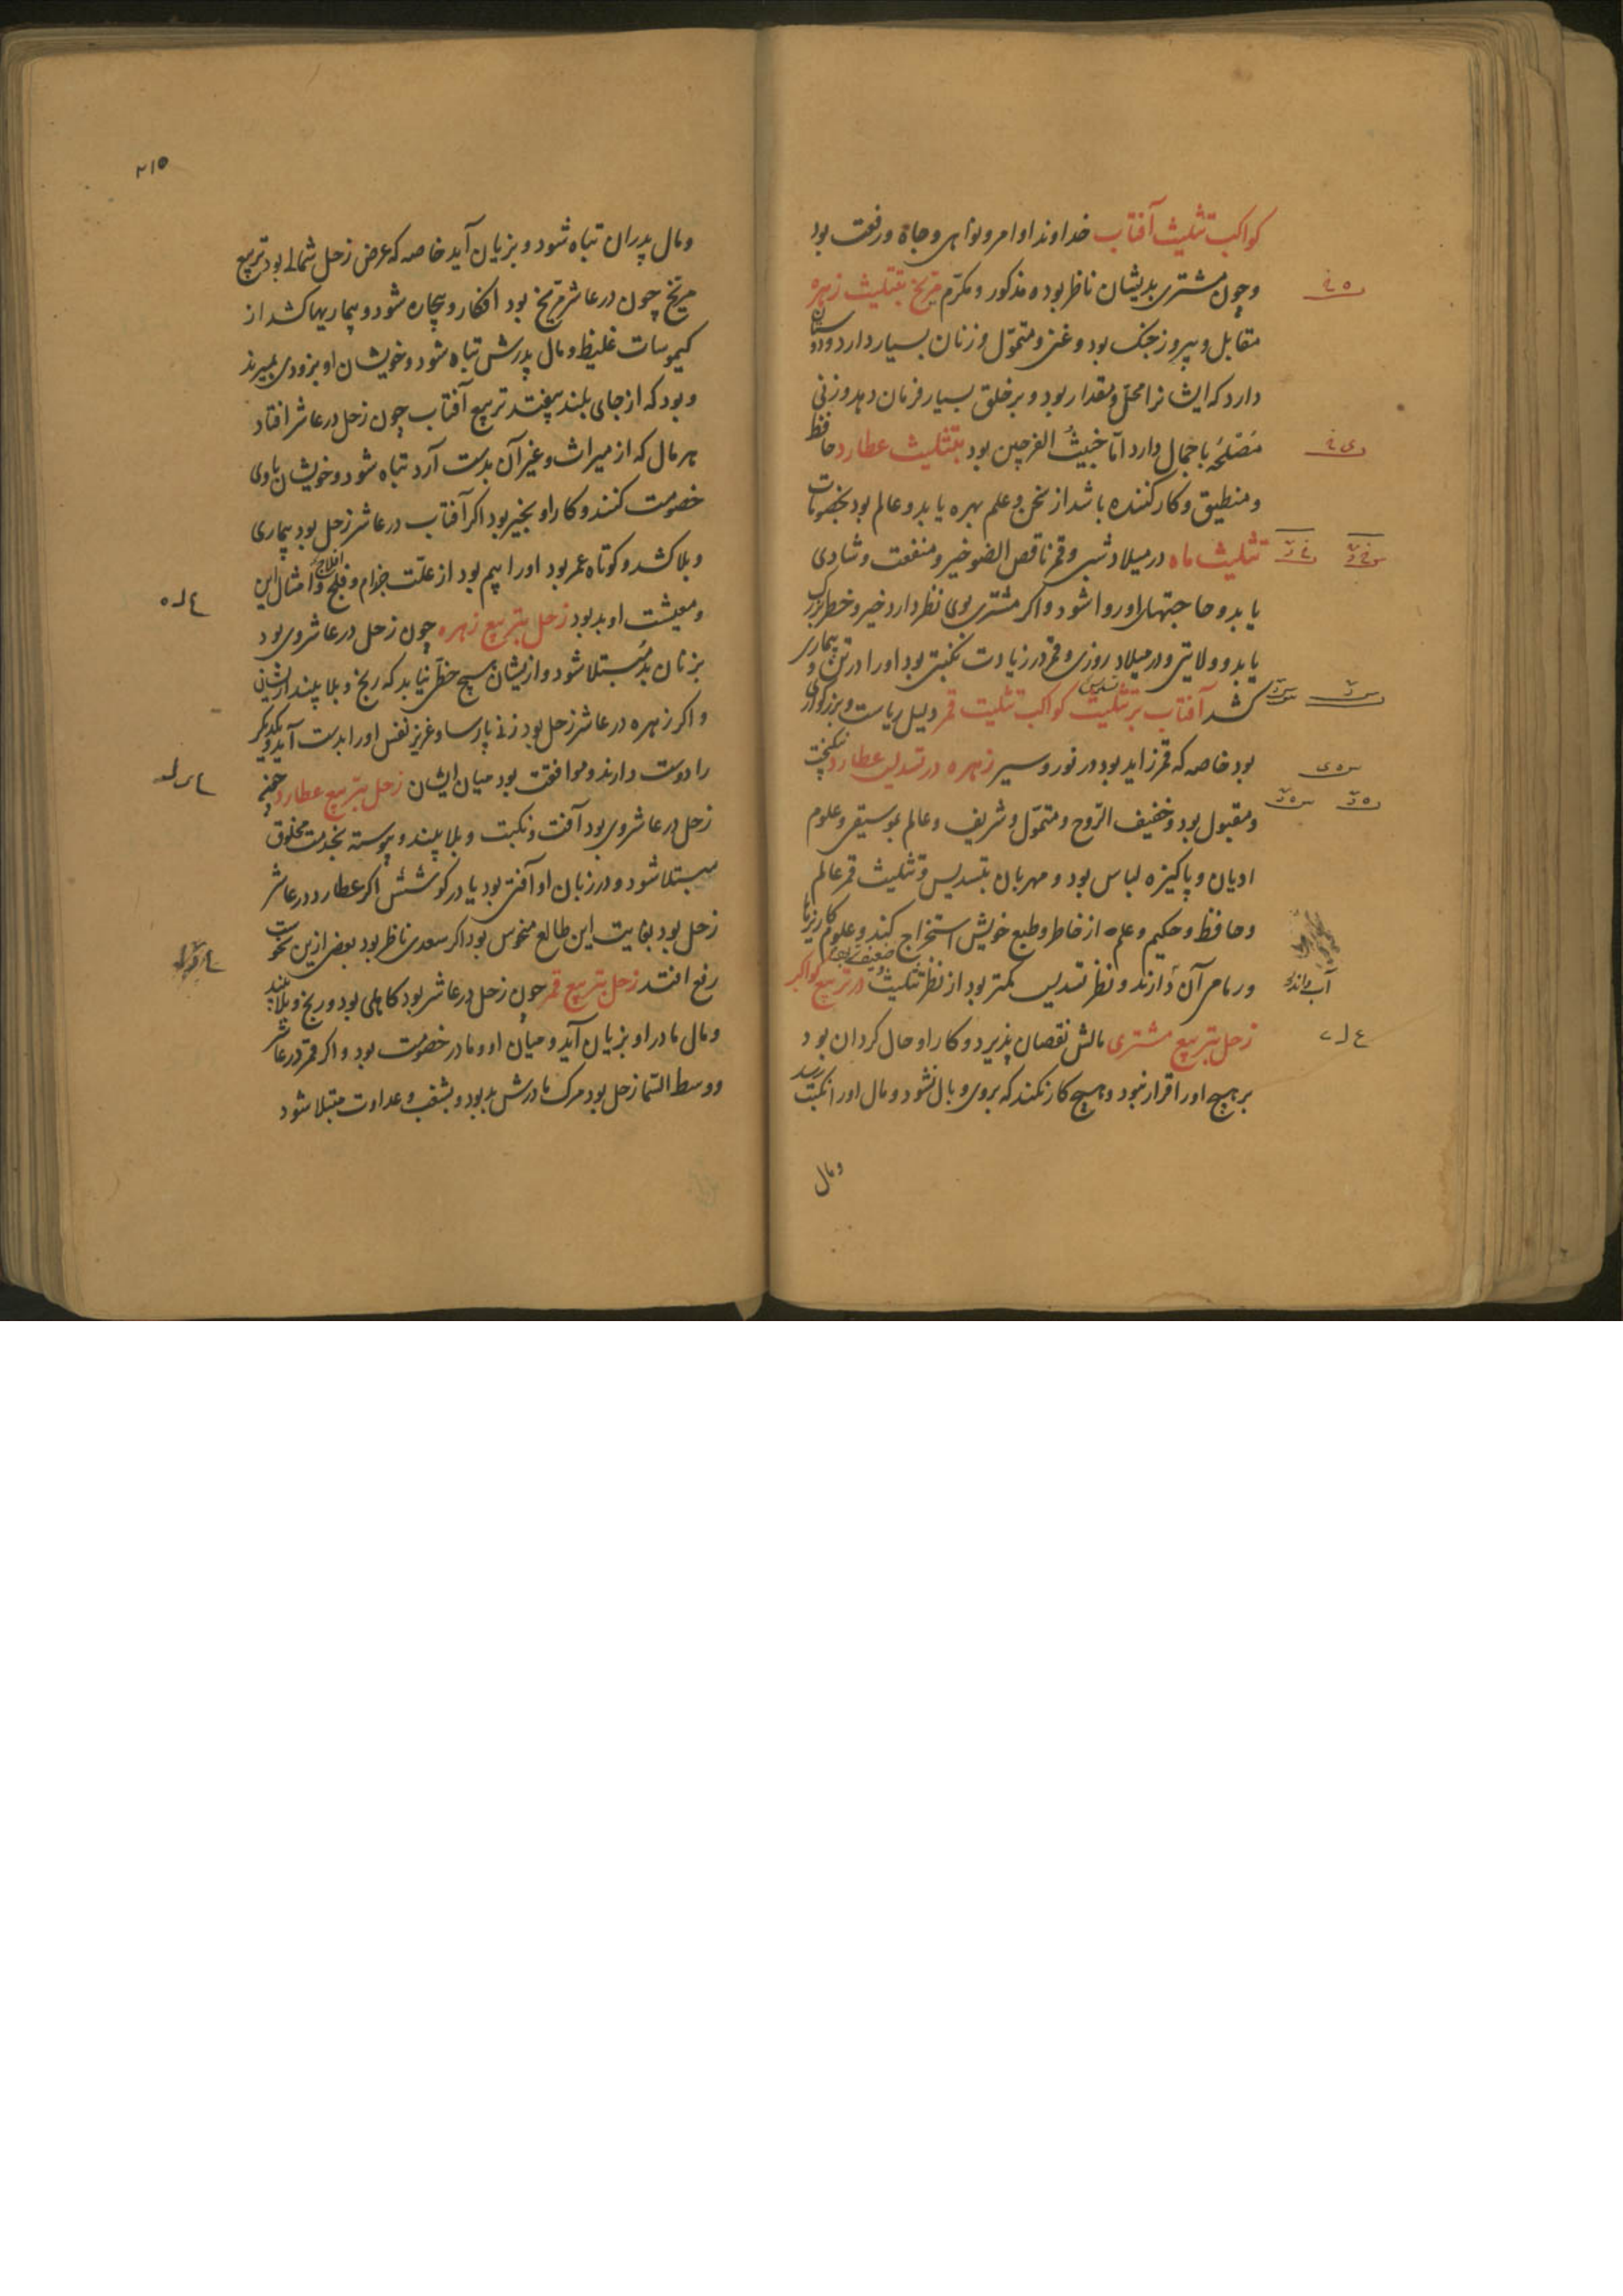 کواکب تثلیث آفتاب خداوند اوامر و نواهی و جاه و رفعت بود
و چون مشتری بدیشان ناظر بود مذکور و مکرّم مریخ بتثلیث زهره
مقابل و پیروز جنک بود و غنی و متموّل و زنان بسیار دارد و دوستان
دارد که ایشانرا محل و مقدار بود و بر خلق بسیار فرمان دهد و زنی
مصلحه با جمال دارد امّا خبیث الفرجین بود بتثلیث عطارد حافظ
و منطیق و کارکننده باشد از سخن و علم بهره یابد و عالم بود بخصومات
تثلیث ماه در میلاد شبی و قمر ناقص الضو خیر و منفعت و شادی
یابد و حاجتهای او روا شود و اکر مشتری بوی نظر دارد خیر و خطر بزرک
یابد و ولایتی و در میلاد روزی و قمر در زیادت نکبتی بود او را در تن و بیماری
کشد آفتاب بر تثلیث تسدیس کواکب تثلیت قمر دلیل ریاست و بزرکواری
بود خاصه که قمر زاید بود در نور و سیر زهره در تسدیس عطارد نیکبخت
و مقبول بود و خفیف الرّوح و متموّل و شریف و عالم بموسیقی و علوم
ادیان و پاکیزه لباس بود و مهربان بتسدیس و تثلیث قمر عالم
و حافظ و حکیم و علم از خاطر و طبع خویش استخراج کند و علوم کاریزها
و رها مر آن دارند و نظر تسدیس کمتر بود از نظر تثلیث در تربیع کواکب
زحل بتربیع مشتری مالش نقصان پذیرد و کار او حال کردان بود
بر هیچ او را قرار نبود و هیچ کار نکند که بر وی وبال نشود و مال او را نکبت رسد
و مال
۲۱۵
و مال پدران تباه شود و بزیان آید خاصه که عرض زحل شمالی بود تربیع
مریخ چون در عاشر مریخ بود افکار و بیچاره شود و بیماریها کشد از
کیموسات غلیظ و مال پدرش تباه شود و خویشان او بزودی بمیرند
و بود که از جای بلند بیفتد تربیع آفتاب چون زحل در عاشر افتاد
هر مال که از میراث و غیر آن بدست آرد تباه شود و خویشان با وی
خصومت کنند و کار او بخیر بود اکر آفتاب در عاشر زحل بود بیماری
و بلا کشد و کوتاه عمر بود او را بیم بود از علّت جزام و فلج و افلاج و امثال این
و معیشت او بد بود زحل بتربیع زهره چون زحل در عاشر وی بود
بزنان بد مبتلا شود و ازیشان هیچ حظّی نیابد که رنج و بلا بیند ازیشان
و اکر زهره در عاشر زحل بود زنی پارسا و عزیز نفس او را بدست آید و یکدیکر
را دوست دارند و موافقت بود میان ایشان زحل بتربیع عطارد چون
زحل در عاشر وی بود آفت و نکبت و بلا بیند و پیوسته بخدمت مخلوق
مبتلا شود و در زبان او آفتی بود یا در کوشش اکر عطارد در عاشر
زحل بود بغایت این طالع منحوس بود اکر سعدی ناظر بود بعضی ازین نحوست
رفع افتد زحل بتربیع قمر چون زحل در عاشر بود کاهلی بود و رنج و بلا بیند
و مال مادر او بزیان آید و میان او و مادر خصومت بود و اکر قمر در عاشر
و وسط السّما زحل بود مرک مادرش بد بود و بشغب و عداوت مبتلا شود